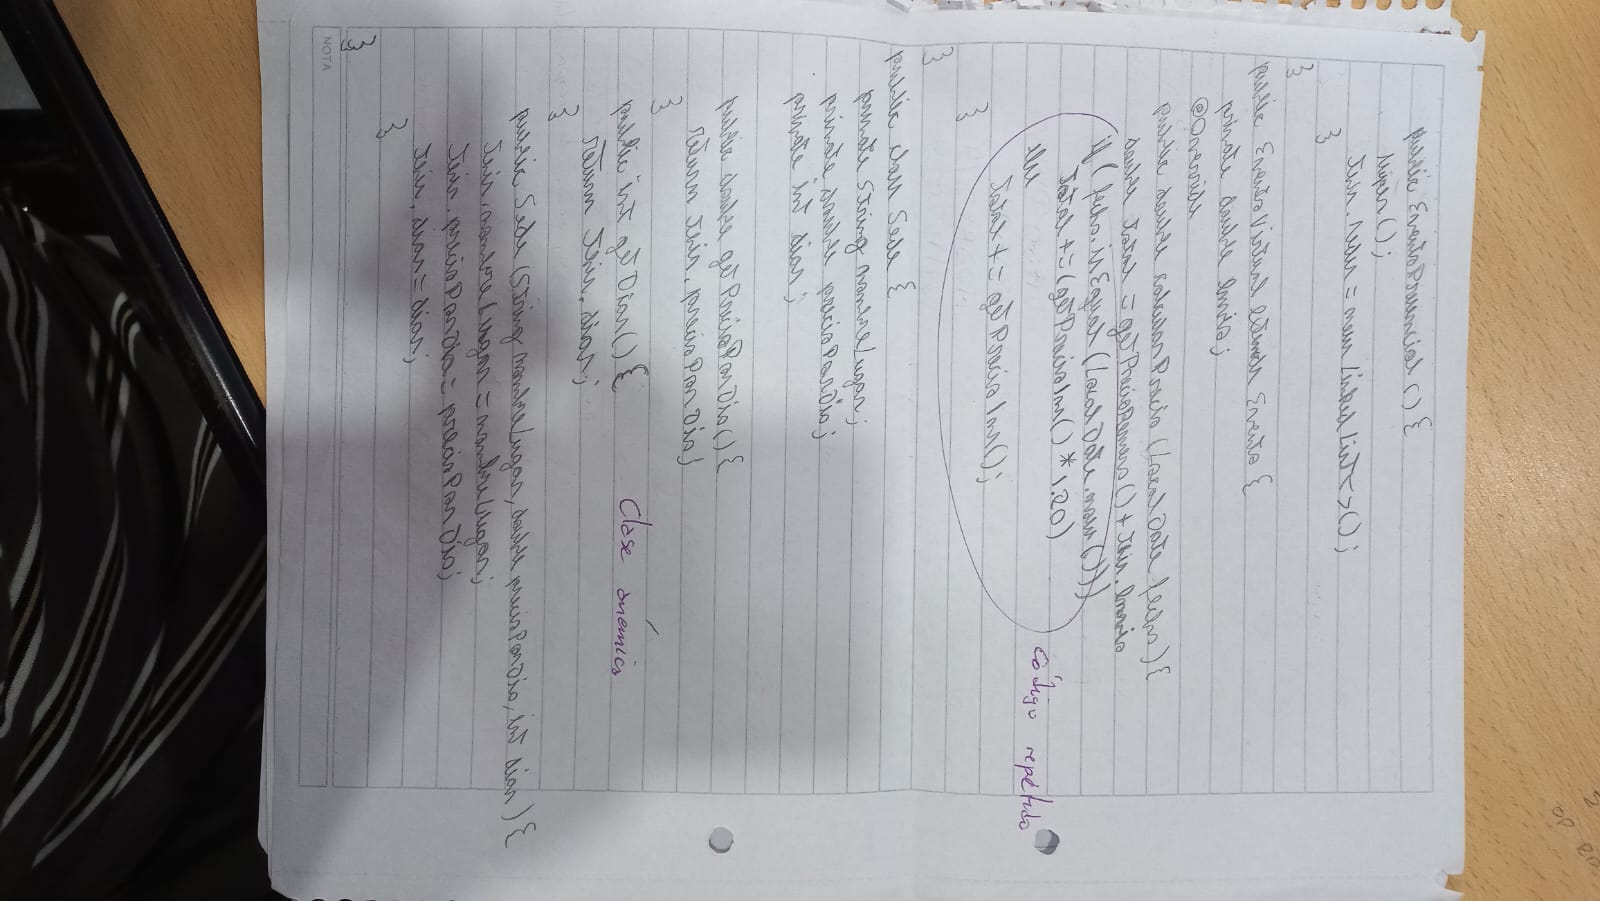 OP RD
public EventoPresencial () {
super();
this.sedes = new LinkedList<>();
}
}
public EventoVirtual extends Evento {
private double envio;
@Override
public double calcularPrecio (LocalDate fecha) {
double total = getPrecioRemera() + this.envio
if (fecha.isEqual (LocalDate.now()))
total += (getPrecioIns() * 1.20)
else
total += getPrecioIns();
código repetido
}
}
public class Sede {
private String nombreLugar;
private double precioPorDia;
private int dias;
public double getPrecioPorDia() {
return this.precioPorDia;
}
public int getDias() {
Clase anémica
return this.dias;
}
public Sede (String nombreLugar, double precioPorDia, int dias) {
this.nombreLugar = nombreLugar;
this.precioPorDia = precioPorDia;
this.dias = dias;
}
}
NOTA